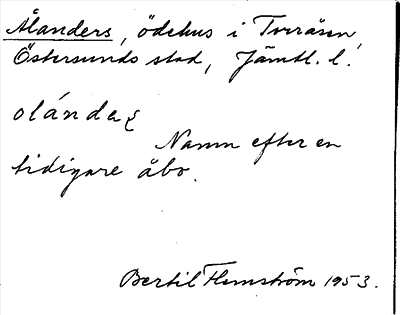 Ålanders, ödehus i Torråsen,
Östersunds stad, Jämtl. l.
olándaʂ
Namn efter en
tidigare åbo.
Bertil Flemström 1953.